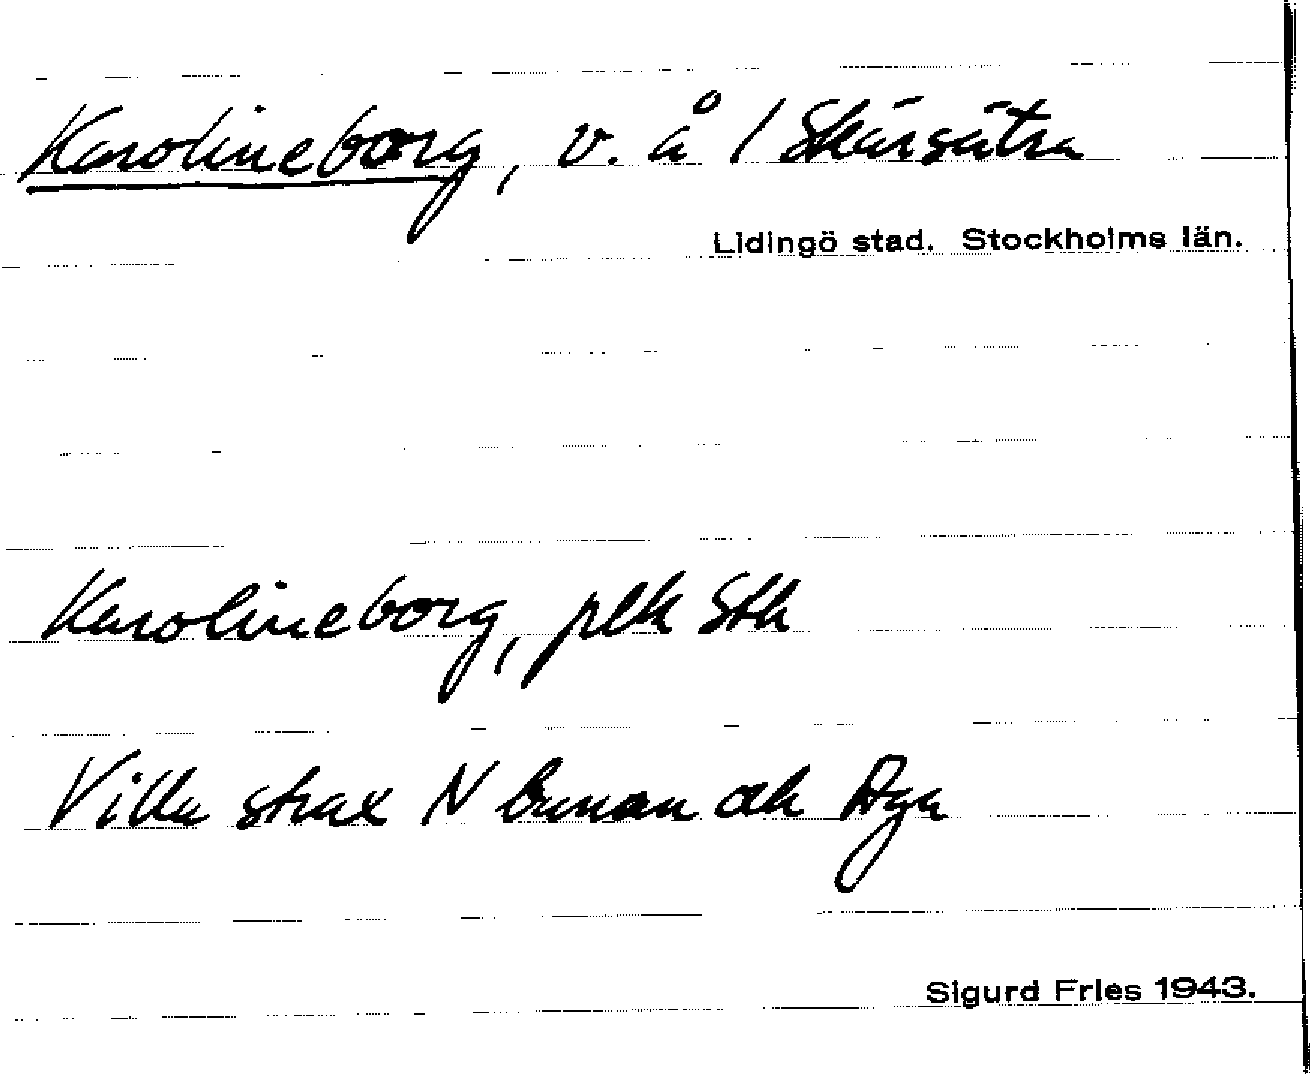 Karolineborg, v. å / Skärsätra
Lidingö stad. Stockholms län.
Karolineborg, plk Stk
Villa strax N Brunan och Aga
Sigurd Fries 1943.